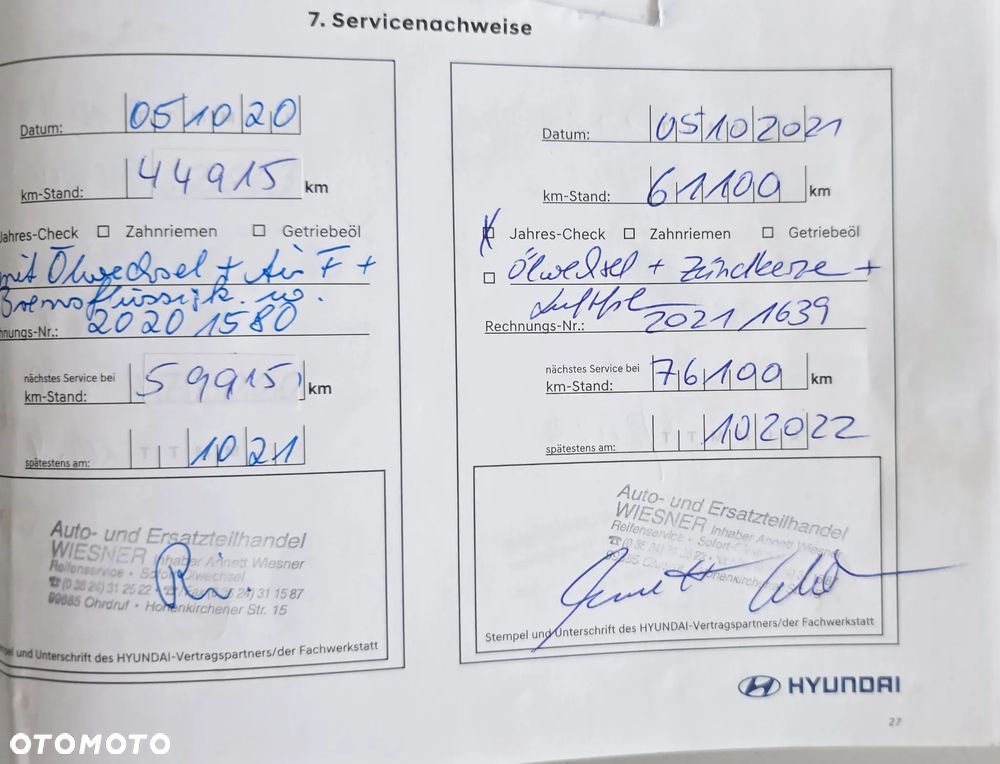 7. Servicenachweise
Datum: 05 10 20
km-Stand: 44915 km
Jahres-Check Zahnriemen Getriebeöl
mit Ölwechsel + Air F +
Bremsflüssigk. w.
nungs-Nr.: 2020 1580
nächstes Service bei
km-Stand: 59915 km
spätestens am: T T 10 21
Auto- und Ersatzteilhandel
WIESNER Inhaber Annett Wiesner
Reifenservice • Sofort-Ölwechsel
☎ (0 36 24) 31 25 22 • Fax (0 36 24) 31 15 87
99885 Ohrdruf • Hohenkirchener Str. 15
pel und Unterschrift des HYUNDAI-Vertragspartners/der Fachwerkstatt
Datum: 05 10 2021
km-Stand: 61100 km
Jahres-Check Zahnriemen Getriebeöl
Ölwechsel + Zündkerze +
Rechnungs-Nr.: 2021/1639
nächstes Service bei
km-Stand: 76100 km
spätestens am: T T 10 2022
Auto- und Ersatzteilhandel
WIESNER Inhaber Annett Wiesner
Reifenservice • Sofort-
99885 Ohrdruf • Hohenkirchener Str.
Stempel und Unterschrift des HYUNDAI-Vertragspartners/der Fachwerkstatt
HYUNDAI
27
OTOMOTO